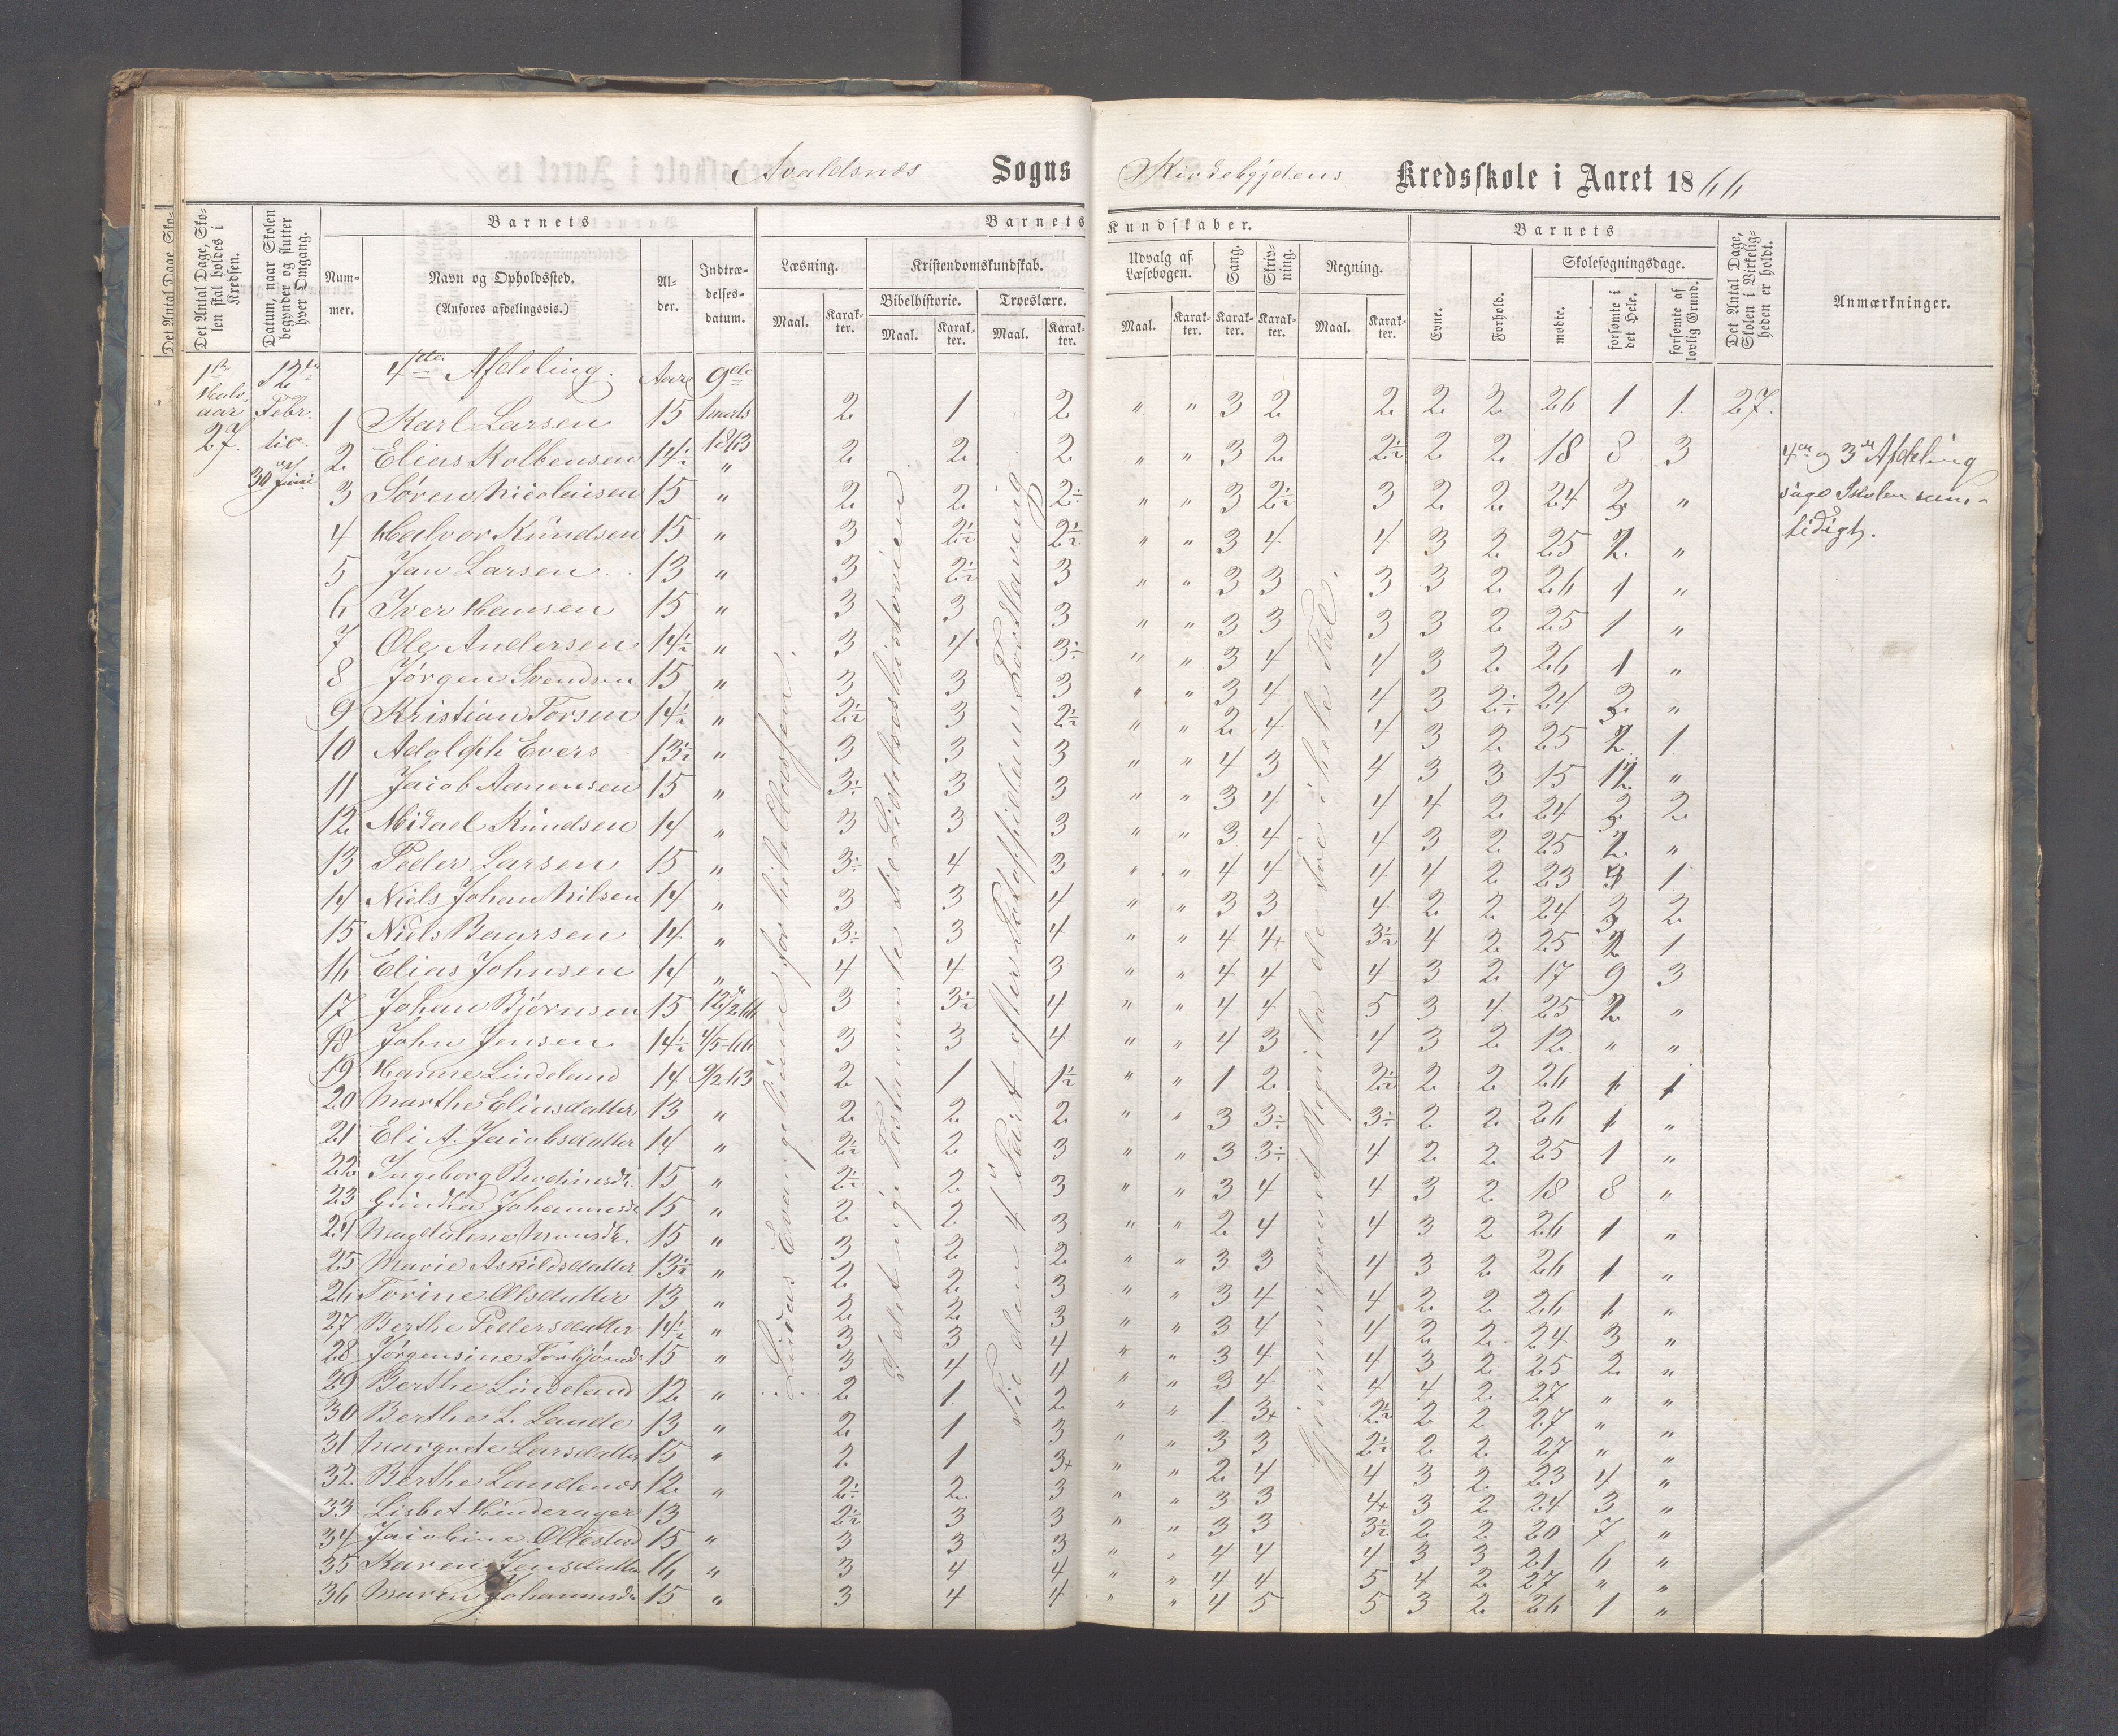 Avaldsnes Sogns Kirkebygdens Kredsskole i Aaret 1866
Det Antal Dage, Skolen skal holdes i Kredsen.
Datum, naar Skolen begynder og slutter hver Omgang.
Barnets
Nummer.
Navn og Opholdssted.
(Anføres afdelingsvis.)
Alder.
Indtrædelsesdatum.
Barnets Kundskaber.
Læsning.
Maal.
Karakter.
Kristendomskundskab.
Bibelhistorie.
Maal.
Karakter.
Troeslære.
Maal.
Karakter.
Udvalg af Læsebogen.
Maal.
Karakter.
Sang.
Karakter.
Skrivning.
Karakter.
Regning.
Maal.
Karakter.
Barnets
Evne.
Forhold.
Skolesøgningsdage.
mødte.
forsømte i det Hele.
forsømte af lovlig Grund.
Det Antal Dage, Skolen i Virkeligheden er holdt.
Anmærkninger.
4de Afdeling. Aar 9de
1 Karl Larsen 15 Marts 2 1 2 " " 3 2 2 2 2 26 1 1 27.
2 Elias Kolbensen 14½ 1863 2 2 2 " " 3 2 2½ 2 2 18 8 3
3 Søren Nicolaisen 15 " 2 2 2÷ " " 3 2½ 3 2 2 24 3 "
4 Halvor Knudsen 15 " 3 2½ 2½ " " 3 4 4 3 2 25 2 "
5 Jan Larsen 13 " 3 2½ 3 " " 3 3 3 3 2 26 1 "
6 Iver Hansen 15 " 3 3 3 " " 3 3 3 3 2 25 1 "
7 Ole Andersen 14½ " 3 4 3÷ " " 3 4 4 3 2 26 1 "
8 Jørgen Svendsen 15 " 3 3 3 " " 3 4 4 3 2÷ 24 3 "
9 Kristian Torsen 14½ " 2½ 3 2½ " " 2 4 4 3 2 25 2 1
10 Adolph Evers 13½ " 3 3 3 " " 4 3 4 3 3 15 12 "
11 Jacob Aanensen 15 " 3÷ 3 3 " " 3 4 4 4 2 24 3 2
12 Mikael Knudsen 14 " 3 3 3 " " 3 4 4 3 2 25 2 "
13 Peder Larsen 15 " 3÷ 4 3 " " 4 4 4 4 2 23 1
14 Niels Johan Nilsen 14 " 3 3 4 " " 3 3 4 2 2 24 3 2
15 Niels Baarsen 14 " 3÷ 3 4 " " 4 4+ 3½ 4 2 25 2 1
16 Elias Johnsen 14 " 4 4 3 " " 4 4 4 3 2 17 9 3
17 Johan Bjørnsen 15 12/2 66 3 3½ 4 " " 4 4 5 3 4 25 2 "
18 John Jensen 14½ 4/5-66 3 3 4 " " 4 3 4 3 2 12 " "
19 Hanne Lindeland 14 9/2-63 2 1 1½ " " 1 2 2½ 2 2 26 1 1
20 Marthe Eliasdatter 13 " 2 2 2 " " 3 3÷ 3÷ 2 2 26 1 "
21 Eli A. Jacobsdatter 14 " 2½ 2 3 " " 3 3÷ 4 2 2 25 1 "
22 Ingeborg 15 " 2½ 2 3 " " 3 4 4 3 2 18 8 "
23 Johannesd. 15 " 2 2 3 " " 2 4 4 3 2 26 1 "
24 Magdalene Monsdr. 15 " 3 2 2 " " 3 3 4 3 2 26 1 "
25 Marie Askildsdatter 13½ " 2 2 3 " " 3 4 4 2 2 26 1 "
26 Torine Olsdatter 13 " 2 2 3 " " 3 4 4 2 2 24 3 "
27 Berthe Pedersdatter 14½ " 3 3 4 " " 3 4 4 3 2 25 2 "
28 Jørgensine Torbjørnsd. 15 " 3 4 4 " " 3 4 4 4 2 27 " "
29 Berthe Lindeland 12 " 2 1 2 " " 1 3+ 2½ 2 2 27 " "
30 Berthe L. Lande 13 " 2 1 3 " " 3 3 2½ 2 2 27 " "
31 Margrete Larsdatter 15 " 2 1 3+ " " 2 4 4 3 2 23 4 "
32 Berthe Landenes 12 " 2½ 2 3 " " 3 3 4+ 3 2 24 3 "
33 Lisbet Hinderager 13 2½ 3 3 " " 3 3 3½ 2 2 20 7 "
34 Jacobine Ollestad 15 " 3 3 3 " " 4 4 4 3 3 21 6 "
35 Karen Jensdatter 16 " 3 4 4 " " 4 4 5 4 2 27 " "
36 Maren Johannesdr 15 " 3 4 4 " " 4 5 5 3 2 26 1 "
1ste
Halv-
aar
27.
12te
Febr.
til
30 Juni
Lukas Evangelium for hele Classen.
I det nye Testamente til Lidelseshistorien
Til den 4 Part efter Pontoppidans Forklaring
Gjennemgaaet Regula de Tri i hele Tal.
4de og 3die Afdeling
søge Skolen sam-
tidigt.